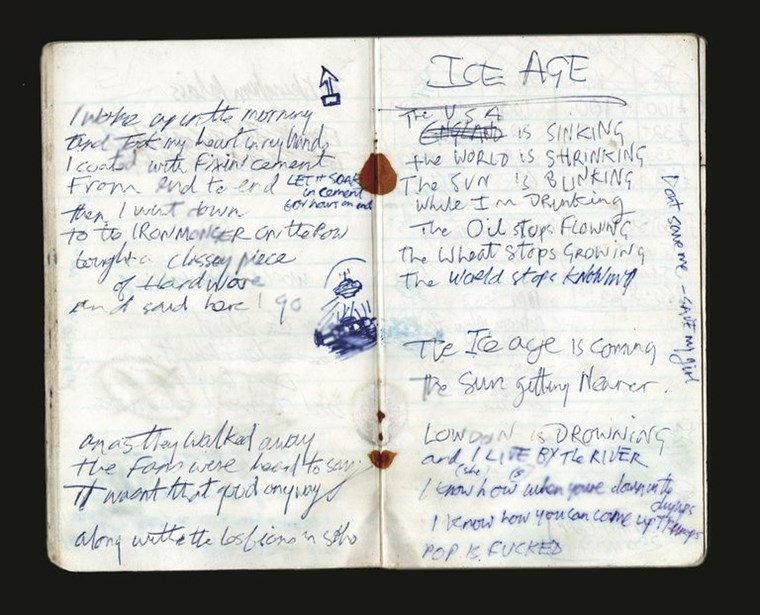 I woke up in the morning
And took my heart in my hands
I coated with Fixin cement
From end to end
LET IT SOAK
in cement
for hours on end
then I went down
to the IRONMONGER on the Row
bought a classy piece
of Hardware
and said here I go
an as they walked away
the fans were heard to say
It wasnt that good anyway
along with the lesbians in soho
ICE AGE
The USA
ENGLAND IS SINKING
the WORLD IS SHRINKING
The SUN IS BLINKING
while I'm Drinking
The Oil stops FLOWING
The Wheat stops GROWING
The World stops KNOWING
Dont save me - SAVE my girl
The Ice age is coming
The Sun getting Nearer.
LONDON is DROWNING
and I LIVE BY The RIVER
(she)
I know how when youre down in the
dumps
I know how you can come up Trumps
POP IS FUCKED